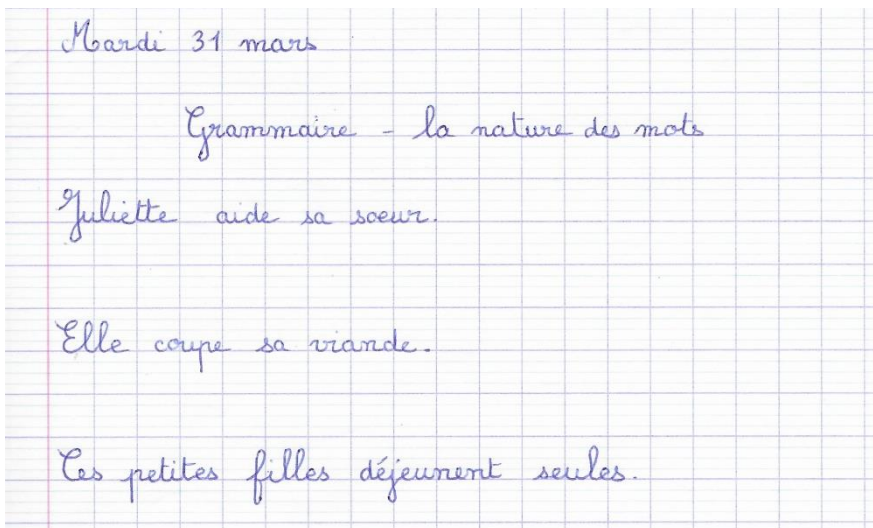 Mardi 31 mars
Grammaire - la nature des mots
Juliette aide sa soeur.
Elle coupe sa viande.
Ces petites filles déjeunent seules.